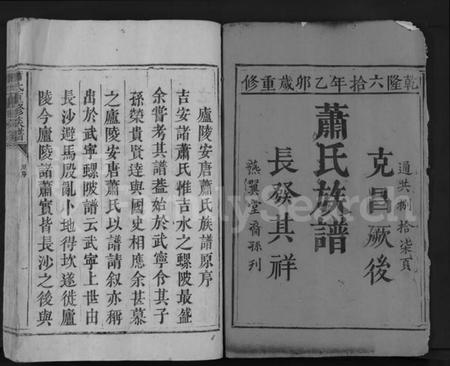 乾隆六拾年乙卯歲重修
通共捌拾柒頁
克昌厥後
蕭氏族譜
長發其祥
燕翼堂裔孫刊
廬陵安唐蕭氏族譜原序
吉安諸蕭氏惟吉水之螺陂最盛
余嘗考其譜葢始於武寧令其子
孫榮貴賢達與國史相應余甚慕
之廬陵安唐蕭氏以譜請叙亦稱
出於武寧螺陂譜云武寧上世由
長沙避馬殷亂卜地得坎遂徙廬
陵今廬陵諸蕭實皆長沙之後與
氏重修族譜
FamilySearch